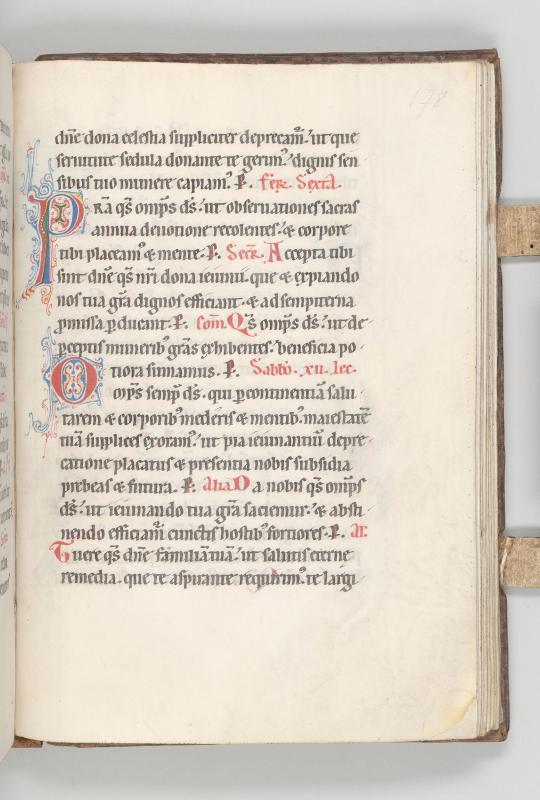 178
dñe dona celestia suppliciter deprecam᷑. ut que
seruitute sedula donante te gerim᷒. dignis sen
sibus tuo munere capiam᷒. P. fer̃. Sexta.
PRa q̃s omp̃s ds̃. ut obseruationes sacras
annua deuotione recolentes. & corpore
tibi placeam᷒ & mente. P. Secr̃. Accepta tibi
sint dñe q̃s nr̃i dona ieiunii. que & expiando
nos tua gr̃a dignos efficiant. & ad sempiterna
ꝓmissa ꝑducant. P. com̃. Q̃s omp̃s ds̃. ut de
ꝑceptis munerib᷒ gr̃as exhibentes. beneficia po
tiora sumamus. P. Sabb̃o. xii. lec.
Omp̃s semp̃ ds̃. qui ꝑ continentiã salu
tarem & corporib᷒ mederis & mentib᷒. maiestatẽ
tuã supplices exoram᷒. ut pia ieiunantiũ depre
catione placatus & presentia nobis subsidia
prebeas & futura. P. Alia Da nobis q̃s omp̃s
ds̃. ut ieiunando tua gr̃a saciemur. & absti
nendo efficiam᷑ cunctis hostib᷒ fortiores. P. Al.
Tuere q̃s dñe familiã tuã. ut salutis eterne
remedia. que te aspirante requirim᷒. te largi